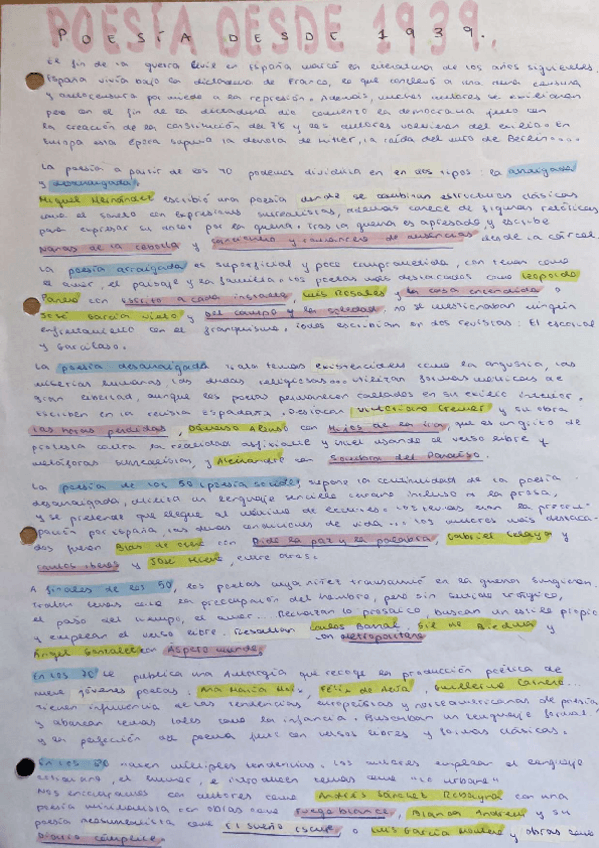 POESÍA DESDE 1939.
El fin de la guerra civil en España marcó la literatura de los años siguientes.
España vivía bajo la dictadura de Franco, lo que conllevó a una censura
y autocensura por miedo a la represión. Además, muchos autores se exiliaron
pero en el fin de la dictadura dio comienzo la democracia junto con
la creación de la constitución del 78 y los autores volvieron del exilio. En
Europa esta época supuso la derrota de Hitler, la caída del muro de Berlín....
La poesía a partir de los 40 podemos dividirla en en dos tipos: la arraigada
y desarraigada.
Miguel Hernández escribió una poesía donde se combinan estructuras clásicas
como el soneto con expresiones surrealistas, además carece de figuras retóricas
para expresar su dolor por la guerra. Tras la guerra es apresado y escribe
Nanas de la cebolla y cancionero y romancero de ausencias desde la cárcel.
La poesía arraigada es superficial y poco comprometida, con temas como
el amor, el paisaje y la familia. Los poetas más destacados como Leopoldo
Panero con escrito a cada instante, Luis Rosales y la casa encendida o
José García Nieto y del campo y la soledad no se mostraban ningún
enfrentamiento con el franquismo. Todos escribían en dos revistas: El escorial
y Garcilaso.
La poesía desarraigada trata temas existenciales como la angustia, las
miserias humanas, las dudas religiosas... utilizan formas métricas de
gran libertad, aunque los poetas permanecen callados en su exilio interior.
Escriben en la revista Espadaña. Destacan Victoriano Cremer y su obra
las horas perdidas, Dámaso Alonso con Hijos de la ira, que es un grito de
protesta contra la realidad asfixiante y cruel usando el verso libre y
metáforas surrealistas, y Aleixandre con Sombra del Paraíso.
La poesía de los 50 (poesía social) supone la continuidad de la poesía
desarraigada, utiliza un lenguaje sencillo cercano incluso a la prosa,
y se pretende que llegue al máximo de lectores. Los temas eran la preocu-
pación por España, las duras condiciones de vida... Los autores más destaca-
dos fueron Blas de Otero con Pido la paz y la palabra, Gabriel Celaya y
cantos iberos y José Hierro, entre otros.
A finales de los 50, los poetas cuya niñez transcurrió en la guerra surgieron.
Tratan temas como la preocupación del hombre, pero sin sentido trágico,
el paso del tiempo, el amor... Rechazan lo prosaico, buscan un estilo propio
y emplean el verso libre. Destacan Carlos Barral, Gil de Biedma y
con Metropolitano
Ángel González con Áspero mundo.
En los 70 se publica una Antología que recoge la producción poética de
nueve jóvenes poetas. Ana María Moix, Félix de Azúa, Guillermo Carnero...
Tienen influencia de las tendencias europeístas y norteamericanas de poesía
y abarcan temas tales como la infancia. Buscaban un lenguaje formal
y la perfección del poema junto con versos libres y formas clásicas.
En los 80 nacen múltiples tendencias. Los autores emplean el lenguaje
cotidiano, el humor, e introducen temas como "lo urbano"
Nos encontramos con autores como Andrés Sánchez Robayna con una
poesía minimalista con obras como Fuego blanco, Blanca Andreu y su
poesía neosurrealista como El sueño oscuro o Luis García Montero y obras como
Diario cómplice.